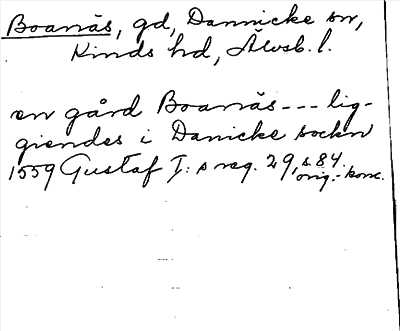 Boarnäs, gd, Dannicke sn,
Kinds hd, Älvsb. l.
en gård Boarnäs --- lig-
giendes i Danicke sockn
1559 Gustaf I:s reg. 29, s. 84.
orig.-konc.